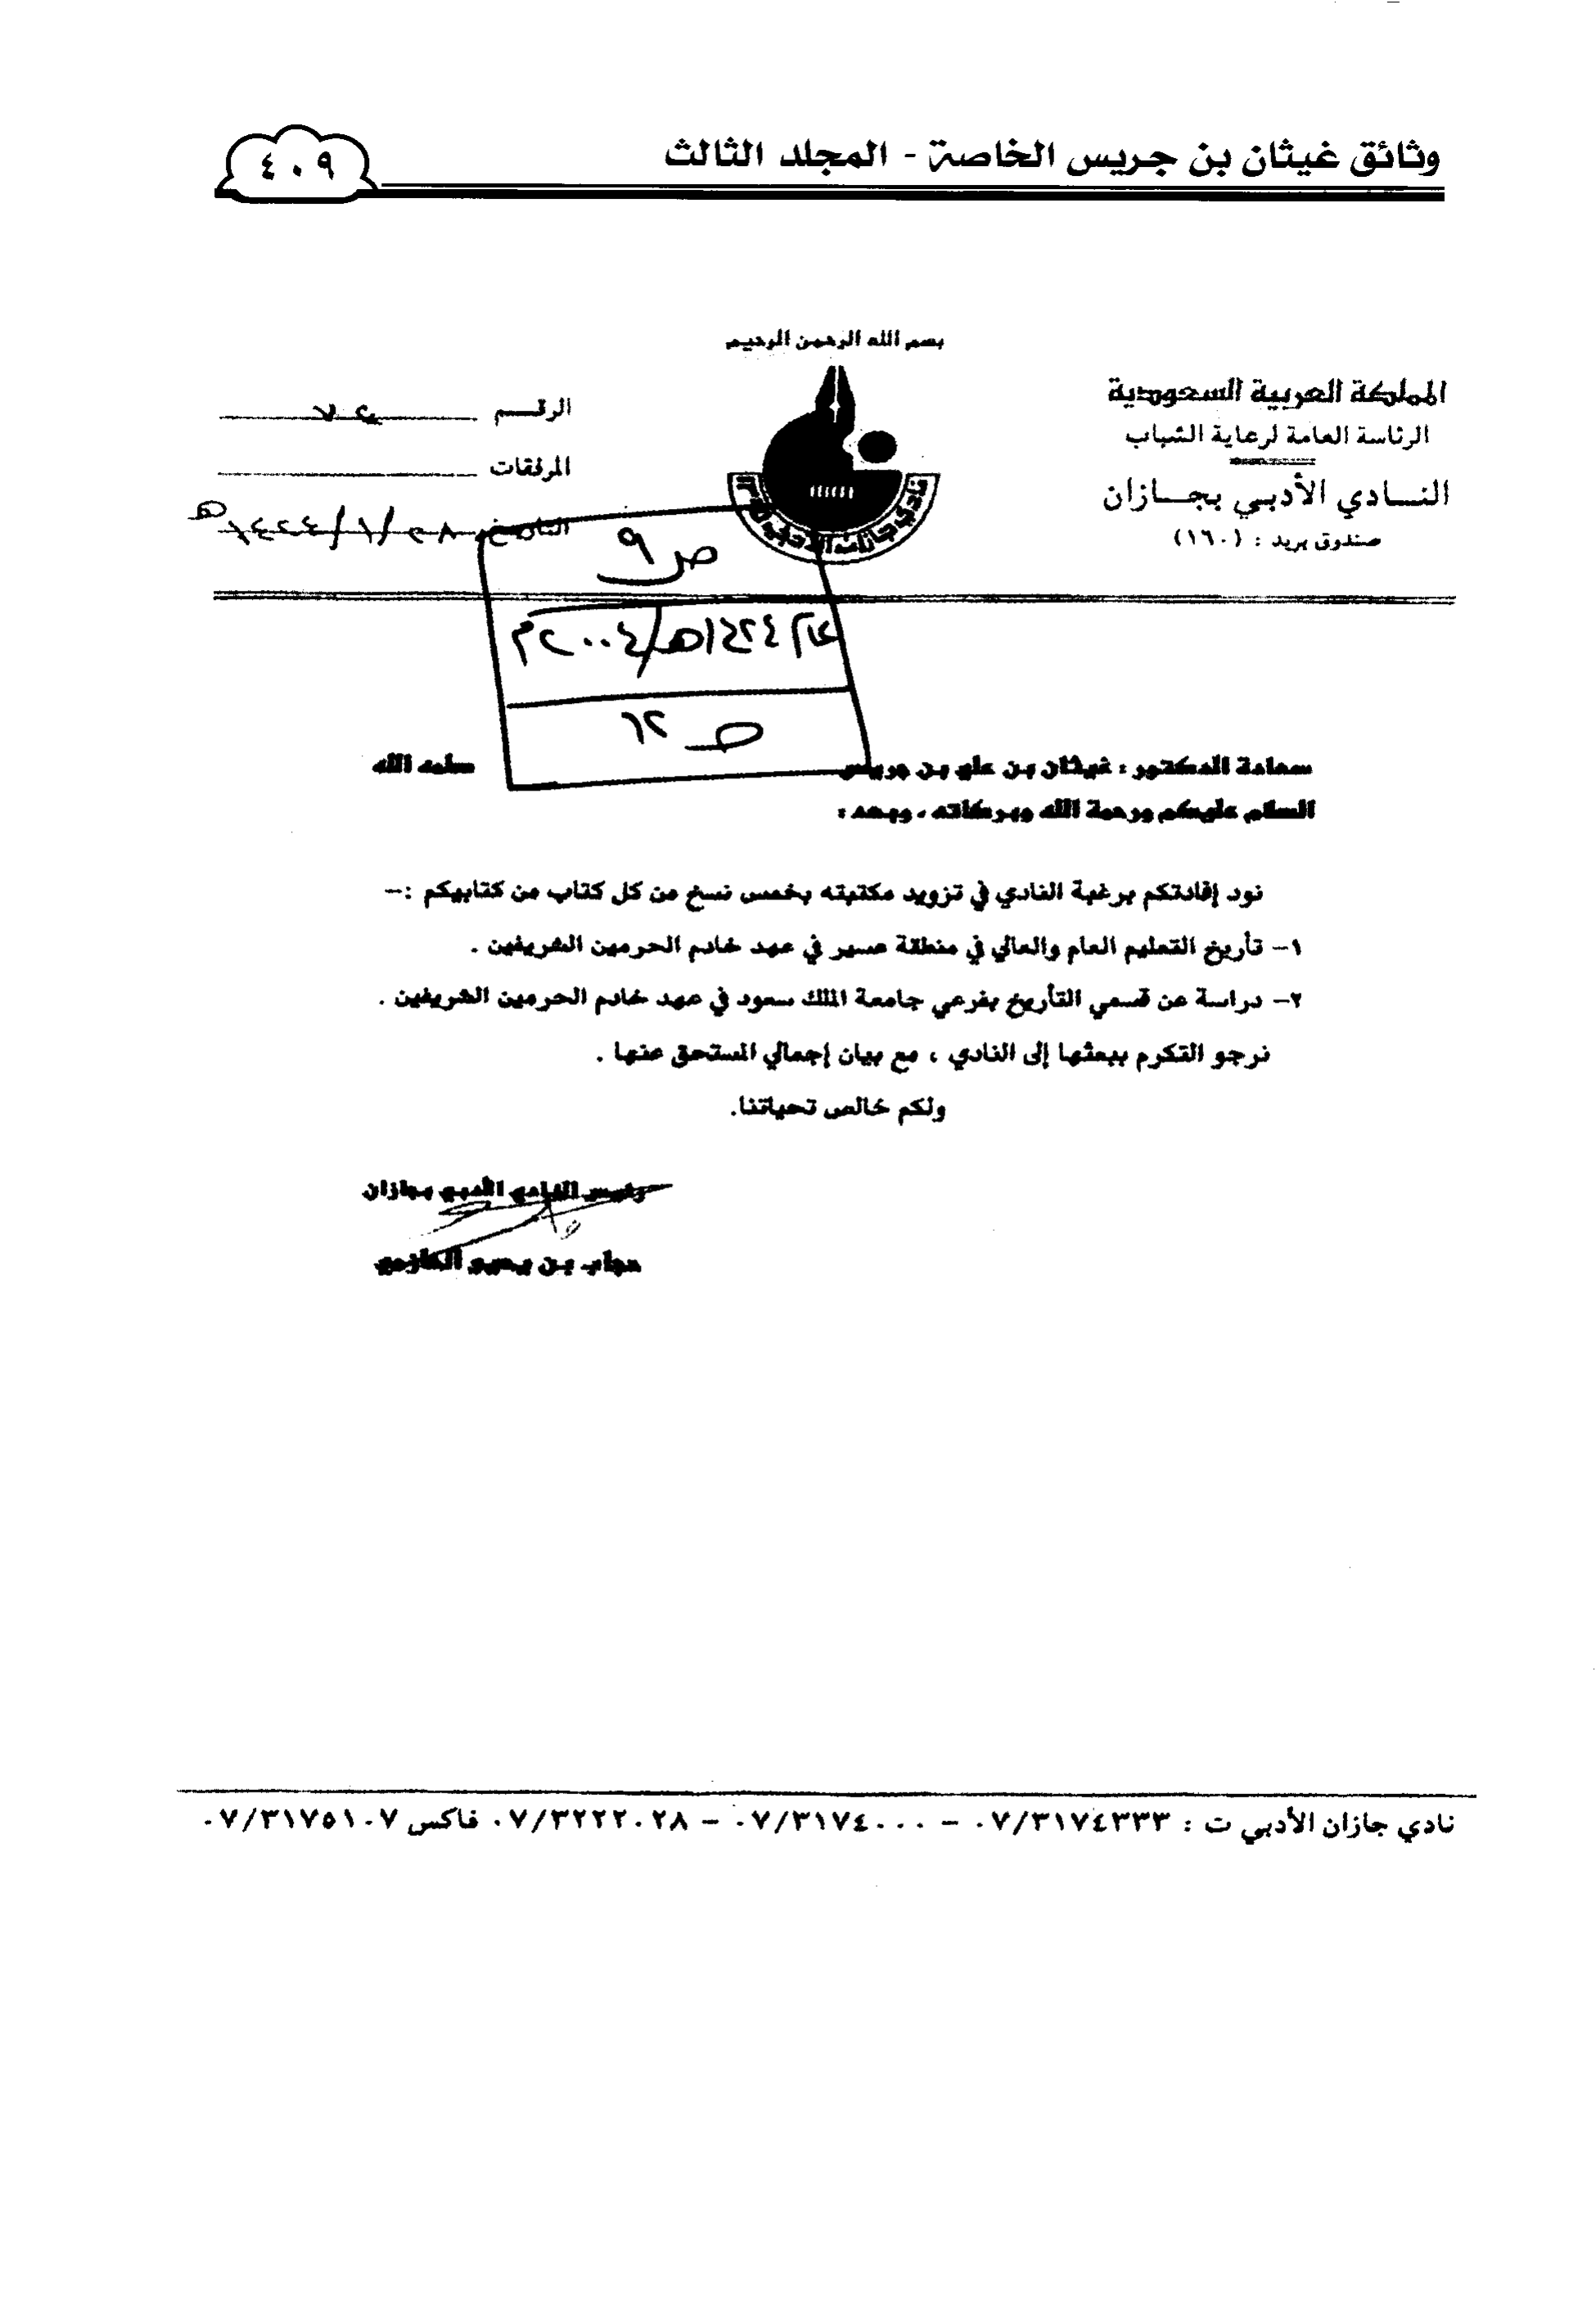 وثائق غيثان بن جريس الخاصة - المجلد الثالث
٤٠٩
بسم الله الرحمن الرحيم
المملكة العربية السعودية
الرئاسة العامة لرعاية الشباب
النـــادي الأدبـي بـجـــازان
صندوق بريد : (١٦٠)
الرقـــم
المرفقات
التاريخ
ص ٩
عام ١٤٢٤هـ/٢٠٠٤م
سعادة الدكتور : غيثان بن علي بن جريس سلمه الله
السلام عليكم ورحمة الله وبركاته ، وبعد :
نود إفادتكم برغبة النادي في تزويد مكتبته بخمس نسخ من كل كتاب من كتابيكم :-
١- تأريخ التعليم العام والعالي في منطقة عسير في عهد خادم الحرمين الشريفين .
٢- دراسة عن قسمي التأريخ بفرعي جامعة الملك سعود في عهد خادم الحرمين الشريفين .
نرجو التكرم ببعثها إلى النادي ، مع بيان إجمالي المستحق عنها .
ولكم خالص تحياتنا.
رئيس النادي الأدبي بجازان
حجاب بن يحيى الحازمي
نادي جازان الأدبي ت : ٠٧/٣١٧٤٣٣٣ – ٠٧/٣١٧٤٠٠٠ – ٠٧/٣٢٢٢٠٢٨ فاكس ٠٧/٣١٧٥١٠٧